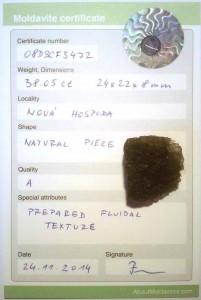 Moldavite certificate
Certificate number
08DSCF5472
Weight, Dimensions
38.05 ct 24x22x8mm
Locality
NOVÁ HOSPODA
Shape
NATURAL PIECE
Quality
A
Special attributes
PREPARED FLUIDAL
TEXTURE
Date
Signature
24.11.2014
AboutMoldavites.com